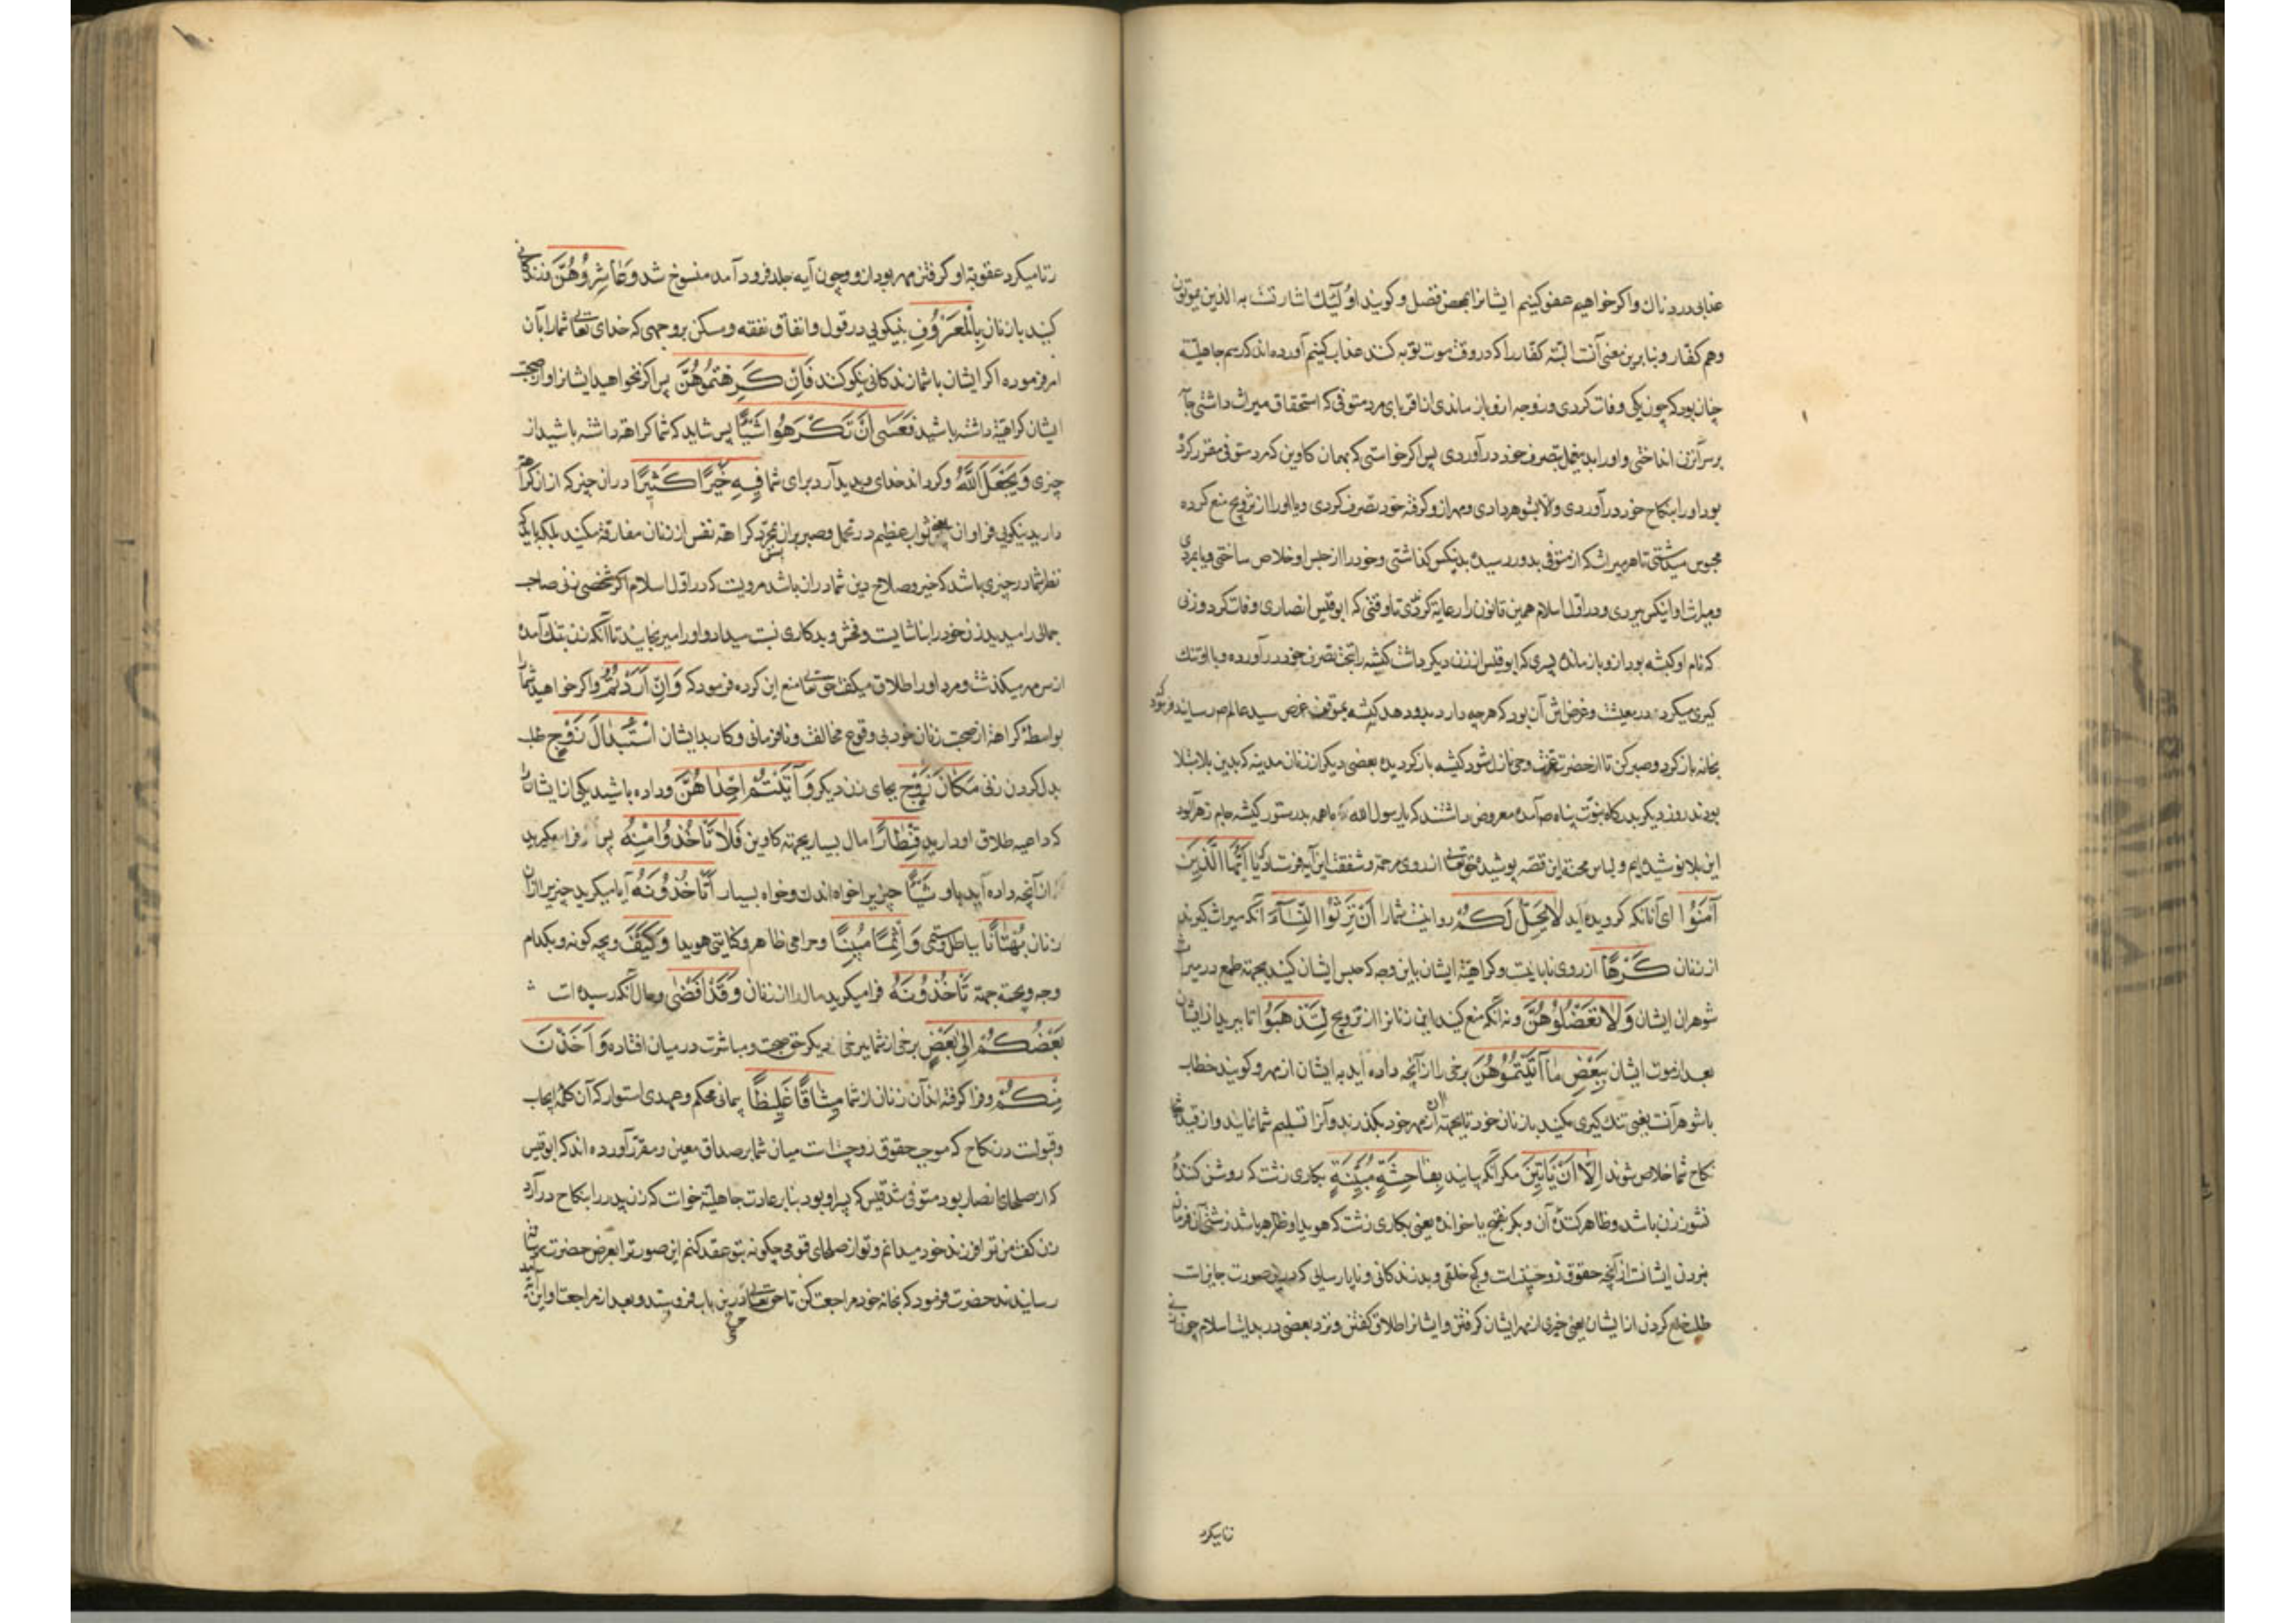 عذابی دردناك و اکر خواهیم عفو کنیم ایشانرا بمحض فضل و کویند اولٓئك اشارتست به الذین یموتون
وهم کفار و بنا برین معنی آنست البته کفار را که در وقت موت توبه کنند عذاب کنیم آورده اند که رسم جاهلیّة
چنان بود که چون یکی وفات کردی و زوجه ازو باز ماندی از اقربای مرد متوفی که استحقاق میراث داشتی جامه
بر سر آن زن انداختی و او را بدین عمل بتصرف خود درآوردی پس اکر خواستی که بهمان کاوین که مرد متوفی مقرر کرده
بود او را بنکاح خود درآوردی و الا بشوهر دادی و مهر ازو کرفته خود تصرف کردی و یا او را از تزویج منع کرده
محبوس میداشتی تا هر میراث که از متوفی بدو رسیده بدینکس کذاشتی و خود را از حبس او خلاص ساختی و یا بمردی
و میراث او اینکس ببردی و در اوّل اسلام همین قانون را رعایة کردندی تا وقتی که ابو قیس انصاری وفات کرد و زنی
که نام او کبشه بود ازو باز مانده پسری که ابو قیس از زن دیکر داشت کبشه را بتحت تصرف خود درآورده و با او تنك
کیری میکرد در معیشت و غرض اش آن بود که هرچه دارد بدو دهد کبشه بموقف عرض سید عالم ص رسانید فرمود که
بخانه باز کرد و صبر کن تا از حضرت عزّت وحی نازل شود کبشه باز کردیده بعضی دیکر از زنان مدینه که بدین بلا مبتلا
بودند روز دیکر بدرکاه نبوّت پناه ص آمده معروض داشتند که یا رسول الله ما همه بدستور کبشه جام زهر آلود
این بلا نوشیده ایم و لباس محنة این قصّه پوشیده حق تعالی از روی مرحمة و شفقت این آیه فرستاد که یٰا اَیُّهَا الَّذینَ
آمَنُوا ای آنانکه کرویده اید لٰا یَحِلُّ لَکُمْ روا نیست شما را اَنْ تَرِثُوا النِّسٰآءَ آنکه میراث کیرید
از زنان کَرْهًا از روی نابایست و کراهیة ایشان باین وجه که حبس ایشان کنید بجهة طمع در میراث
شوهران ایشان وَلٰا تَعْضُلُوهُنَّ و نه آنکه منع کنید این زنانرا از تزویج لِتَذْهَبُوا تا ببرید از ایشان
بعد از موت ایشان بِبَعْضِ مٰا آتَیْتُمُوهُنَّ برخی را از آنچه داده اید به ایشان از مهر و کویند خطاب
با شوهرآنست یعنی تنك کیری مکنید با زنان خود تا بجهة آن از مهر خود بکذرند و آنرا تسلیم شما نمایند و از قید
نکاح شما خلاص شوند اِلّا اَنْ یَأتینَ مکر آنکه بیایند بِفٰاحِشَةٍ مُبَیِّنَةٍ بکاری زشت که روشن کننده
نشوز زن باشد و ظاهر کننده آن و بکر بفتح یا خوانده یعنی بکاری زشت که هویدا و ظاهر باشد زشتی آن فرمان
نبردن ایشانست از آنچه حقوق زوجیّت است و کج خلقی و بد زندکانی و ناپارسایی که درین صورت جایز است
طلب خلع کردن از ایشان یعنی چیزی از مهر ایشان کرفتن و ایشانرا طلاق کفتن و نزد بعضی در بدایت اسلام چون زنی
زنا میکرد
زنا میکرد عقوبة او کرفتن مهر بود ازو و چون آیه جلد فرود آمد منسوخ شد وَعٰاشِرُوهُنَّ و زندکانی
کنید با زنان بِالْمَعْرُوفِ بنیکویی در قول و انفاق نفقه و سکن بر وجهی که خدای تعالی شما را بآن
امر فرموده اکر ایشان با شما زندکانی نیکو کنند فَاِنْ کَرِهْتُمُوهُنَّ پس اکر نخواهید ایشانرا و از صحبت
ایشان کراهیّة داشته باشید فَعَسیٰ اَنْ تَکْرَهُوا شَیْئًا پس شاید که شما کراهة داشته باشید از
چیزی وَیَجْعَلَ اللّٰهُ و کرداند خدای و پدید آرد برای شما فیهِ خَیْرًا کَثیرًا در آن چیز که از آن کراهة
دارید نیکویی فراوان یعنی ثواب عظیم در تحمل و صبر بر آن بمجرّد کراهة نفس از زنان مفارقة مکنید بلکه باید که
نظر شما در چیزی باشد که خیر و صلاح دین شما در آن باشد مرویست که در اوّل اسلام اکر شخصی زنی صاحب
جمال را میدید زن خود را بناشایست و فحش و بدکاری نسبت میداد و او را میرنجانید تا آنکه زن بتنك آمده
از سر مهر میکذشت و مرد او را طلاق میکفت حق تعالی منع این کرده فرمود که وَاِنْ اَرَدْتُمُ و اکر خواهید شما
بواسطۀ کراهة از صحبت زنان خود بی وقوع مخالفت و نافرمانی و کار بد ایشان اسْتِبْدٰالَ زَوْجٍ طلب
بدل کردن زنی مَکٰانَ زَوْجٍ بجای زن دیکر وَآتَیْتُمْ اِحْدٰاهُنَّ و داده باشید یکی از ایشان
که داعیه طلاق او دارید قِنْطٰارًا مال بسیار بجهة کاوین فَلٰا تَأْخُذُوا مِنْهُ پس فرا مکیرید
از آنچه داده آید باو شَیْئًا چیزیرا خواه اندك و خواه بسیار اَتَأْخُذُونَهُ آیا میکیرید چیزیرا از آن
زنان بُهْتٰانًا بباطل و ستمی وَاِثْمًا مُبینًا و حرامی ظاهر و کناهی هویدا وَکَیْفَ و بچه کونه و بکدام
وجه و بچه جهة تَأْخُذُونَهُ فرا میکیرید مال را از زنان وَقَدْ اَفْضیٰ و حال آنکه رسیده است
بَعْضُکُمْ اِلیٰ بَعْضٍ برخی از شما ببرخی دیکر حق صحبت و مباشرت در میان افتاده وَاَخَذْنَ
مِنْکُمْ و فرا کرفته اند آن زنان از شما میثٰاقًا غَلیظًا پیمانی محکم و عهدی استوار که آن کلمۀ ایجاب
و قبولست در نکاح که موجب حقوق زوجیّت است میان شما بر صداق معین و مقرّر آورده اند که ابو قیس
که از صلحای انصار بود متوفی شد قیس که پسر او بود بنا بر عادت جاهلیّة خواست که زن پدر را بنکاح درآرد
زن کفت من ترا فرزند خود میدانم و تو از صلحای قومی چکونه بتو عقد کنم این صورترا بعرض حضرت رسالت
رسانیدند حضرت فرمود که بخانه خود مراجعت کن تا حق تعالی درین باب چه فرستد و بعد از مراجعت او این آیه